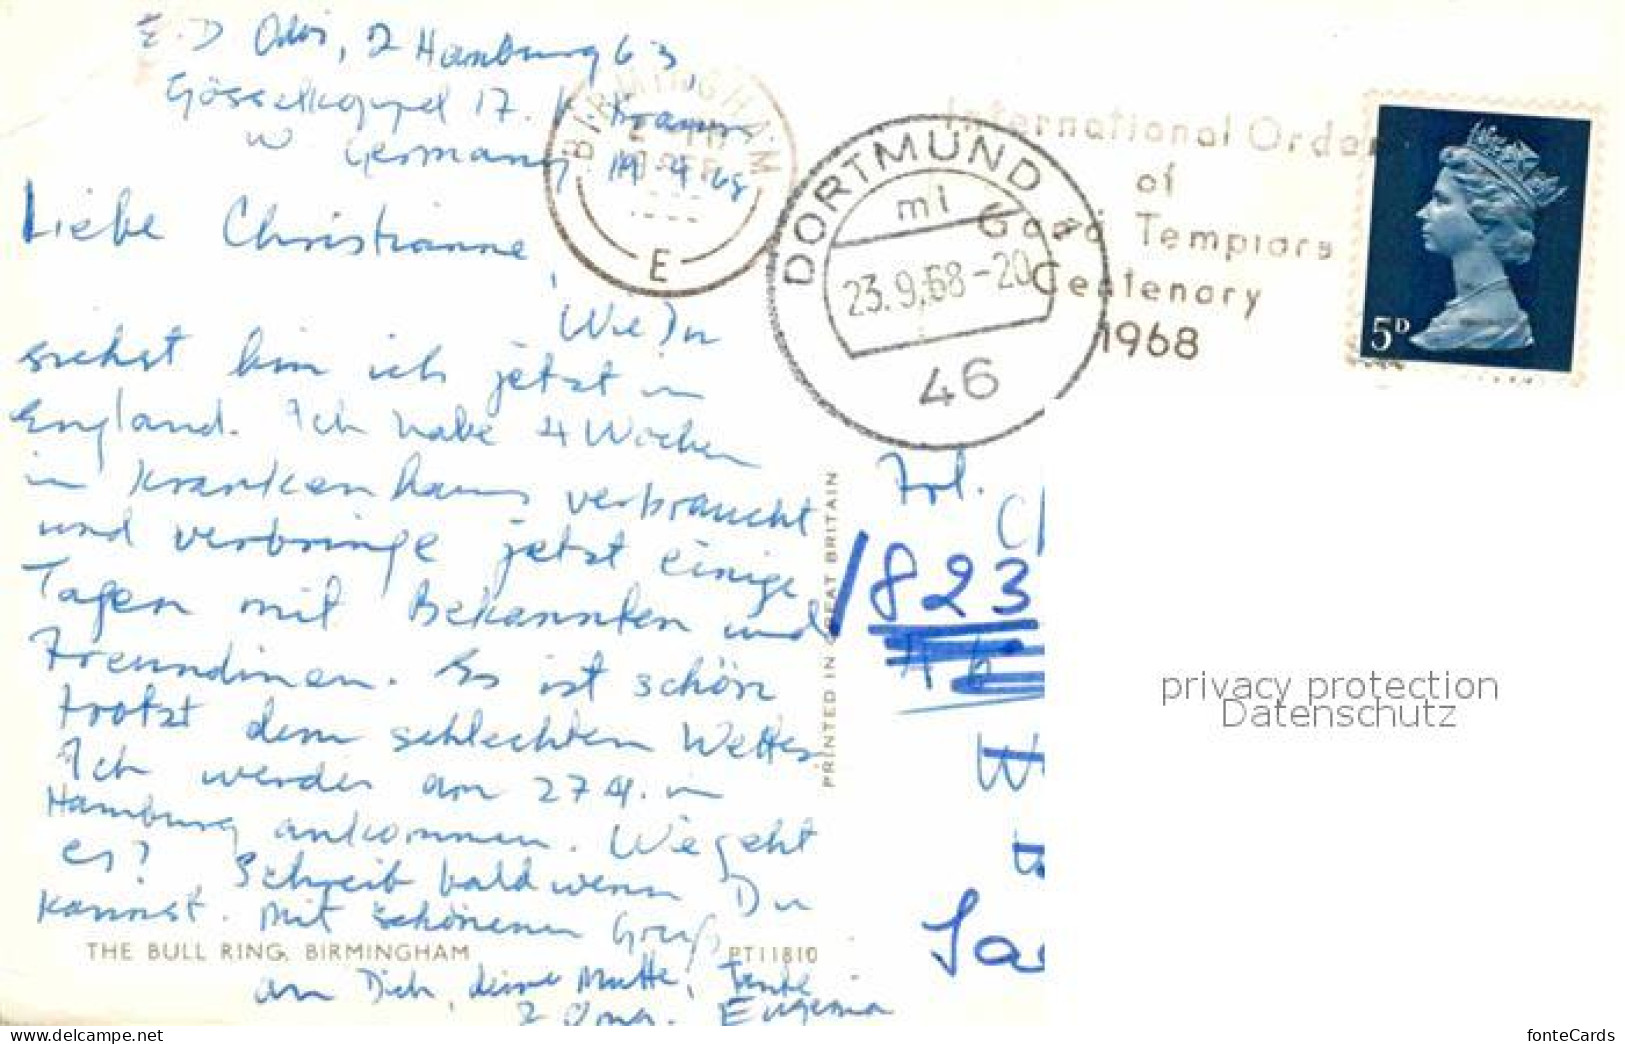 E. D Odoi, 2 Hamburg 63
Gösselkoppel 17.
W Germany 19.9.68
Liebe Christianne,
Wie Du
siehst bin ich jetzt in
England. Ich habe 4 Wochen
in Krankenhaus verbraucht
und verbringe jetzt einige
Tagen mit Bekannten und
Freundinen. Es ist schön
trotzt dem schlechten Wetter
Ich werder am 27 9. in
Hamburg ankommen. Wie geht
es? Schreib bald wenn Du
kannst. Mit schönenen Gruß
an Dich, deine Mutte, Tante
2 Oma. Eugenia
THE BULL RING, BIRMINGHAM
PT11810
PRINTED IN GREAT BRITAIN
BIRMINGHAM
E
DORTMUND
mi
23.9.68-20
46
International Order
of
Good Templars
Centenary
1968
5D
Frl.
823
46
privacy protection
Datenschutz
www.delcampe.net
fonteCards